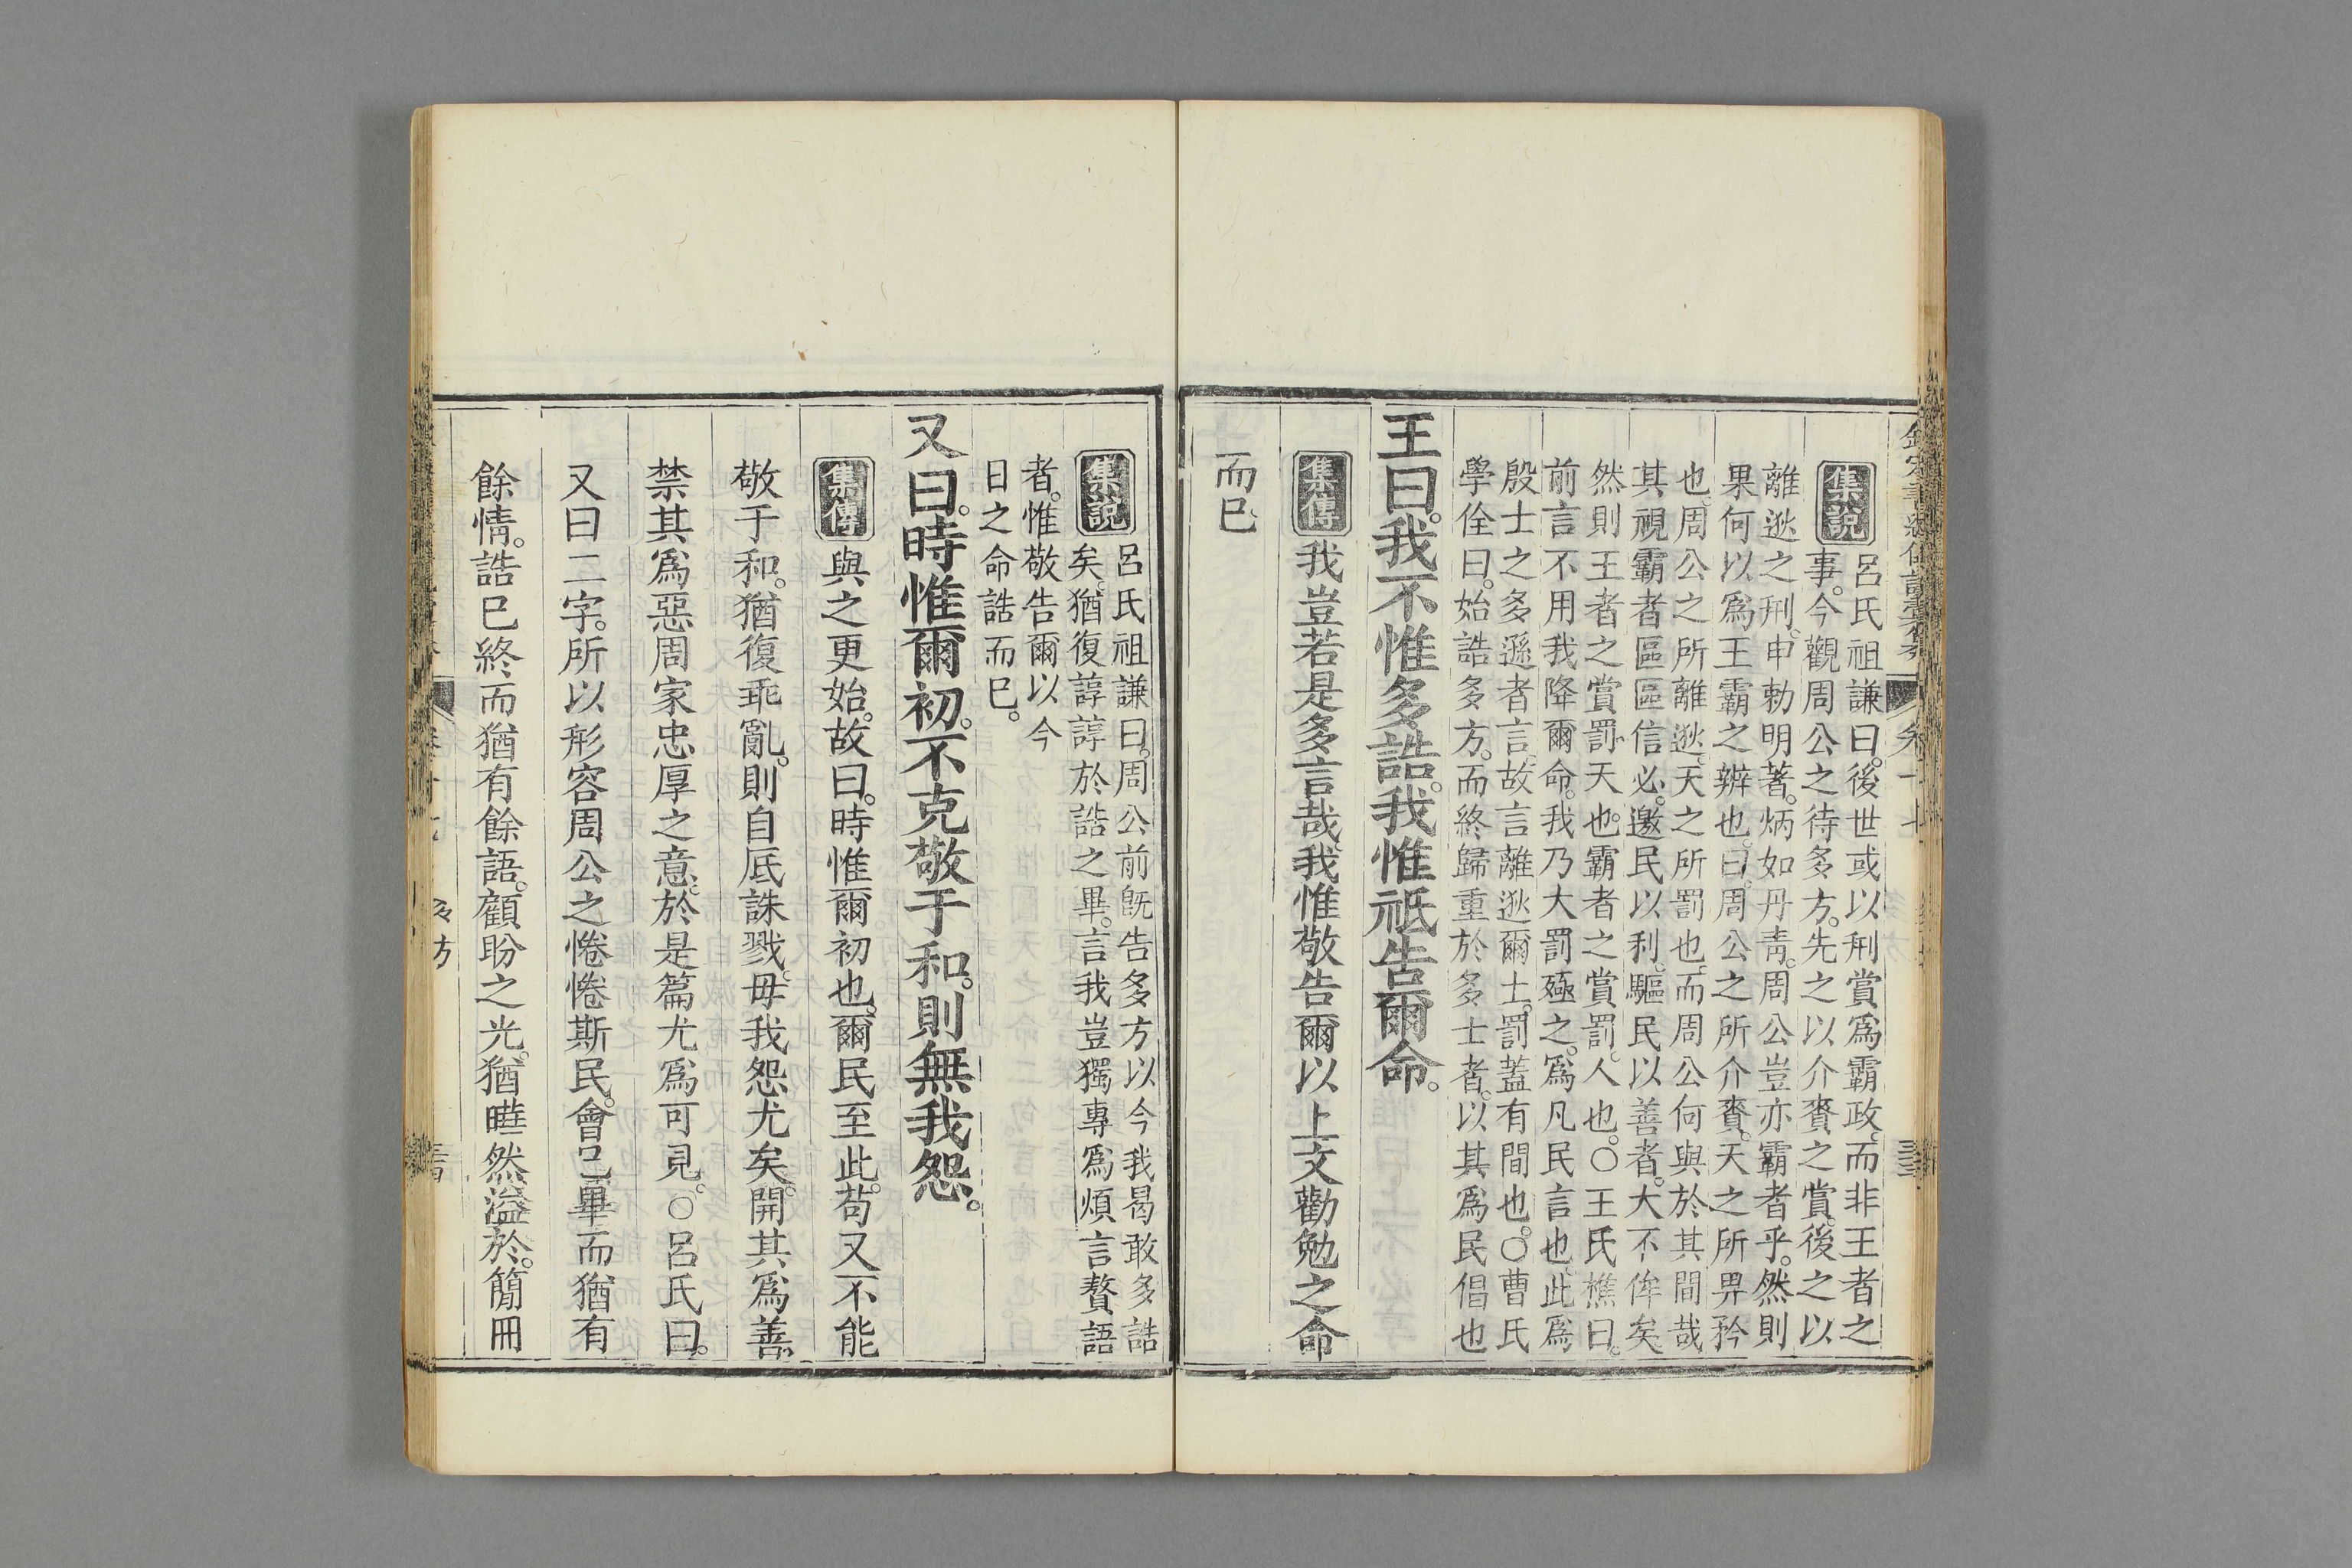 欽定書經傳說彙纂
卷十七
集說
呂氏祖謙曰。後世或以刑賞爲霸政。而非王者之
事。今觀周公之待多方。先之以介賚之賞。後之以
離逖之刑。申勅明著。炳如丹靑。周公豈亦霸者乎。然則
果何以爲王霸之辨也。曰。周公之所介賚。天之所畀矜
也。周公之所離逖。天之所罰也。而周公何與於其間哉
其視霸者區區信必。邀民以利。驅民以善者。大不侔矣
然則王者之賞罰天也。霸者之賞罰。人也。○王氏樵曰。
前言不用我降爾命。我乃大罰殛之。爲凡民言也。此爲
殷士之多遜者言。故言離逖爾土。罰蓋有間也。○曹氏
學佺曰。始誥多方。而終歸重於多士者。以其爲民倡也
王曰。我不惟多誥。我惟祗告爾命。
集傳
我豈若是多言哉。我惟敬告爾以上文勸勉之命
而已
集說
呂氏祖謙曰。周公前旣告多方以今我曷敢多誥
矣。猶復諄諄於誥之畢。言我豈獨專爲煩言贅語
者。惟敬告爾以今
日之命誥而已。
又曰。時惟爾初。不克敬于和。則無我怨。
集傳
與之更始。故曰。時惟爾初也。爾民至此。苟又不能
敬于和。猶復乖亂。則自底誅戮。毋我怨尤矣。開其爲善。
禁其爲惡周家忠厚之意。於是篇尤爲可見。○呂氏曰。
又曰二字。所以形容周公之惓惓斯民。會已畢而猶有
餘情。誥已終而猶有餘語。顧盼之光。猶曄然溢於。簡冊
多方